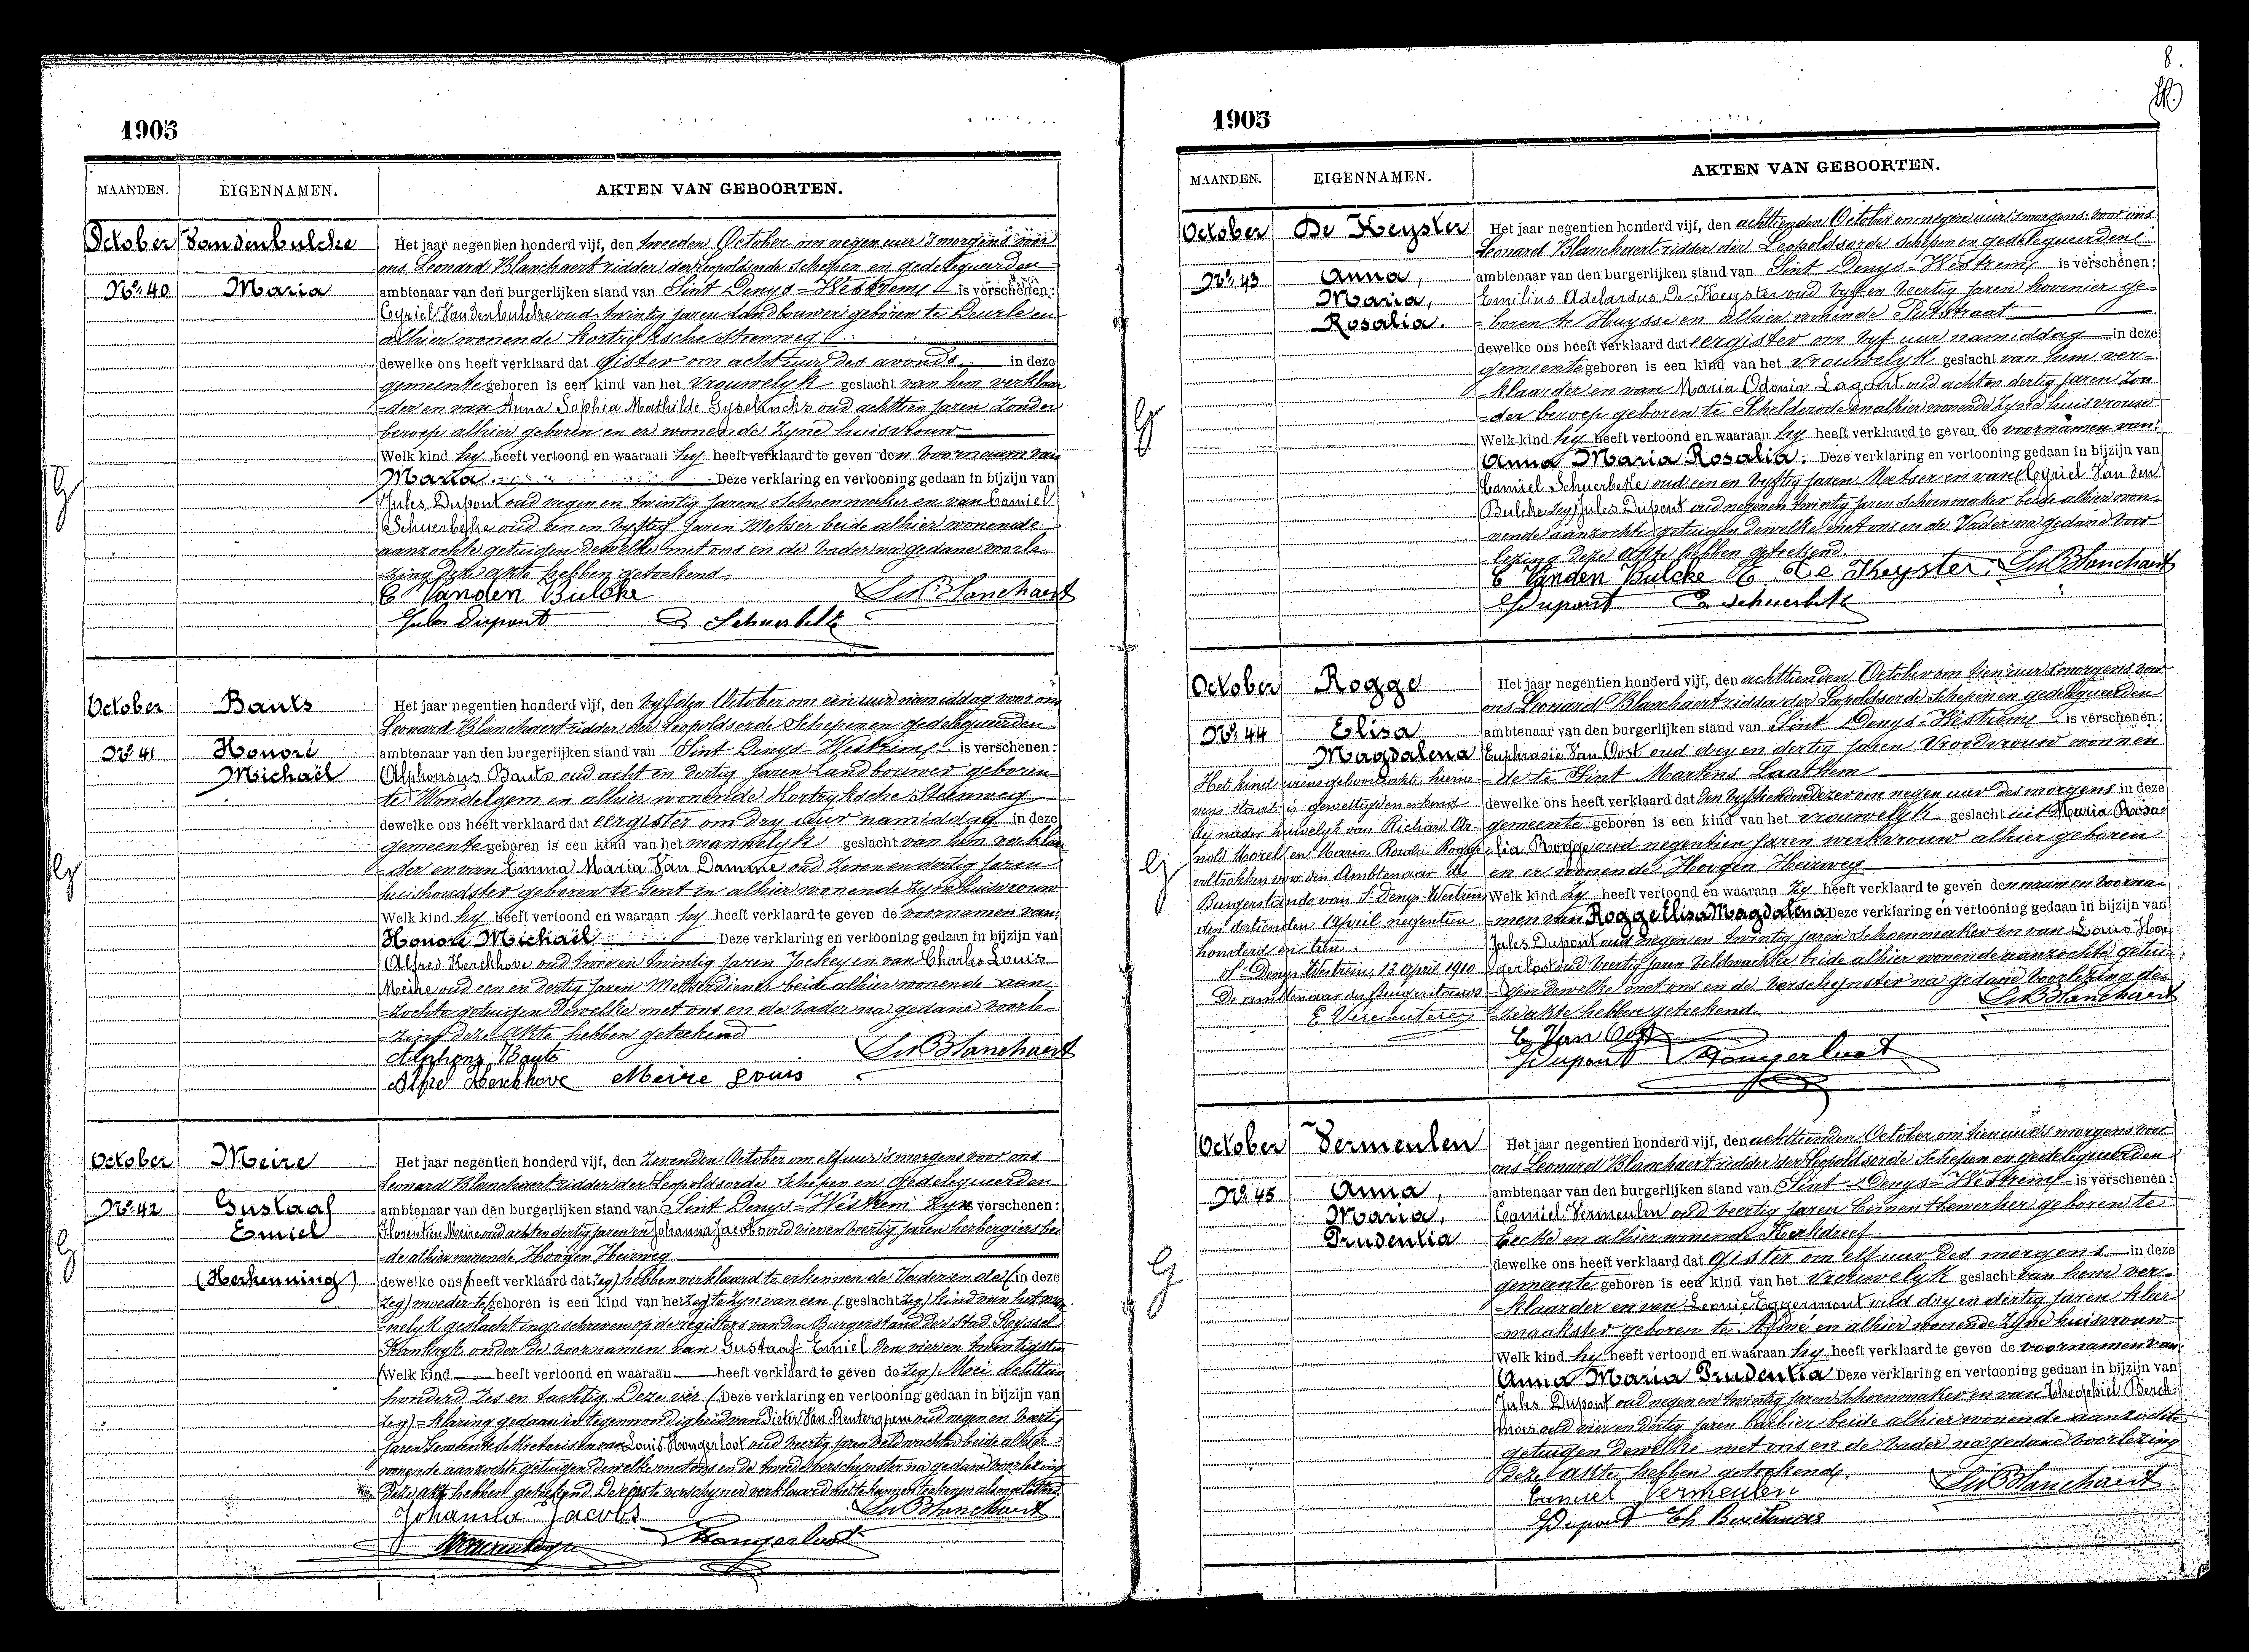 1905
MAANDEN. EIGENNAMEN. AKTEN VAN GEBOORTEN.
October Vandenbulcke
Nº 40 Maria
Het jaar negentien honderd vijf, den tweeden October om negen uur 's morgens voor
ons Leonard Blanchaert ridder der Leopoldsorde Schepen en gedelegueerden
ambtenaar van den burgerlijken stand van Sint Denys-Westrem is verschenen:
Cyriel Vandenbulcke oud twintig jaren landbouwer geboren te Deurle en
alhier wonende Kortryksche steenweg
dewelke ons heeft verklaard dat Gister om acht uur des avonds in deze
gemeente geboren is een kind van het vrouwelyk geslacht van hem verklaar
-der en van Anna Sophia Mathilde Gyselinck oud achttien jaren zonder
beroep alhier geboren en er wonende zyne huisvrouw
Welk kind hy heeft vertoond en waaraan hy heeft verklaard te geven den voornaam van
Maria Deze verklaring en vertooning gedaan in bijzijn van
Jules Dupont oud negen en twintig jaren Schoenmaker en van Camiel
Schuerbeke oud een en vyftig jaren Metser beide alhier wonende
aanzochte getuigen dewelke met ons en de vader na gedane voorle-
zing deze akte hebben geteekend.
C Vanden Bulcke Ls Blanchaert
Jules Dupont C Schuerbeke
October Bauts
Nº 41 Honoré
Michaël
Het jaar negentien honderd vijf, den vyfden October om een uur namiddag voor ons
Leonard Blanchaert ridder der Leopoldsorde Schepen en gedelegueerden
ambtenaar van den burgerlijken stand van Sint Denys-Westrem is verschenen:
Alphonsus Bauts oud acht en dertig jaren Landbouwer geboren
te Wondelgem en alhier wonende Kortryksche Steenweg
dewelke ons heeft verklaard dat eergister om dry uur namiddag in deze
gemeente geboren is een kind van het mannelyk geslacht van hem verklaar-
-der en van Emma Maria Van Damme oud zeven en dertig jaren
huishoudster geboren te Gent en alhier wonende zyne huisvrouw
Welk kind hy heeft vertoond en waaraan hy heeft verklaard te geven de voornamen van:
Honoré Michaël Deze verklaring en vertooning gedaan in bijzijn van
Alfred Kerckhove oud twee en twintig jaren Jockey en van Charles Louis
Meire oud een en dertig jaren Metserdiener beide alhier wonende aan-
-zochte getuigen dewelke met ons en de vader na gedane voorle-
zing deze akte hebben geteekend
Alphons Bauts Ls Blanchaert
Alfred Kerckhove Meire Louis
October Meire
Nº 42 Gustaaf
Emiel
(Herkenning)
Het jaar negentien honderd vijf, den zevenden October om elf uur 's morgens voor ons
Leonard Blanchaert ridder der Leopoldsorde Schepen en gedelegueerden
ambtenaar van den burgerlijken stand van Sint Denys-Westrem zyn verschenen:
Florentin Meire oud acht en dertig jaren en Johanna Jacobs oud vier en veertig jaren herbergiers bei
-de alhier wonende Hoogen Heirweg
dewelke ons (heeft verklaard dat zeg) hebben verklaard te erkennen de Vader en de (in deze
zeg) moeder te (geboren is een kind van het zeg) te zyn van een (geslacht zeg) kind van het man
-nelyk geslacht ingeschreven op de registers van den Burgerstand der stad
Frankryk onder de voornamen van Gustaaf Emiel den vier en twintigsten
(Welk kind heeft vertoond en waaraan heeft verklaard te geven de zeg) Mei achttien
honderd zes en tachtig. Deze ver (Deze verklaring en vertooning gedaan in bijzijn van
zeg) -klaring gedaan in tegenwoordigheid van Pieter Van Renterghem oud negen en veertig
jaren Gemeente Sekretaris en van Louis Hongerloot oud veertig jaren veldwachter beide alhier
wonende aanzochte getuigen dewelke met ons en de tweede verschynster na gedane voorlezing
deze akte hebben geteekend. De eerste verschyner verklaard niet te kunnen teekenen als ongeletterd
Johanna Jacobs Ls Blanchaert
Hongerloot
8.
1905
MAANDEN. EIGENNAMEN. AKTEN VAN GEBOORTEN.
October De Keyster
Nº 43 Anna,
Maria,
Rosalia.
Het jaar negentien honderd vijf, den achttienden October om negen uur 's morgens voor ons
Leonard Blanchaert ridder der Leopoldsorde Schepen en gedelegueerden
ambtenaar van den burgerlijken stand van Sint Denys-Westrem is verschenen:
Emilius Adelardus De Keyster oud vyf en veertig jaren hovenier ge-
-boren te Huysse en alhier wonende Putstraat
dewelke ons heeft verklaard dat eergister om vyf uur namiddag in deze
gemeente geboren is een kind van het vrouwelyk geslacht van hem ver-
-klaarder en van Maria Odonia Lagaert oud acht en dertig jaren zon
-der beroep geboren te Schelderode en alhier wonende zyne huisvrouw
Welk kind hy heeft vertoond en waaraan hy heeft verklaard te geven de voornamen van:
Anna Maria Rosalia. Deze verklaring en vertooning gedaan in bijzijn van
Camiel Schuerbeke oud een en vyftig jaren Metser en van (Cyriel Van den
Bulcke zeg) Jules Dupont oud negen en twintig jaren Schoenmaker beide alhier wo-
nende aanzochte getuigen dewelke met ons en de Vader na gedane voor-
-lezing deze akte hebben geteekend.
C Vanden Bulcke E. De Keyster Ls Blanchaert
J Dupont C Schuerbeke
October Rogge
Nº 44 Elisa
Magdalena
Het kind wiens geboorteakt hierne-
vens staat is gewettigd en erkend
by nader huwelyk van Richard Ar-
nold Morel en Maria Rosalie Rogge
voltrokken voor den Ambtenaar des
Burgerstands van St Denys-Westrem
den dertienden April negentien
honderd en tien.
St Denys Westrem, 13 April 1910
De ambtenaar des Burgerstands
Het jaar negentien honderd vijf, den achttienden October om tien uur 's morgens voor
ons Leonard Blanchaert ridder der Leopoldsorde Schepen en gedelegueerden
ambtenaar van den burgerlijken stand van Sint Denys-Westrem is verschenen:
Euphrasie Van Oost oud dry en dertig jaren Vroedvrouw wonnen
-de te Sint Martens Laathem
dewelke ons heeft verklaard dat den vyftienden dezer om negen uur des morgens in deze
gemeente geboren is een kind van het vrouwelyk geslacht uit Maria Rosa-
lia Rogge oud negentien jaren werkvrouw alhier geboren
en er wonende Hoogen Heirweg
Welk kind zy heeft vertoond en waaraan zy heeft verklaard te geven den naam en voorna-
-men van Rogge Elisa Magdalena Deze verklaring en vertooning gedaan in bijzijn van
Jules Dupont oud negen en twintig jaren Schoenmaker en van Louis Hon-
gerloot oud veertig jaren veldwachter beide alhier wonende aanzochte getui-
-gen dewelke met ons en de verschynster na gedane voorlezing de-
-ze akte hebben geteekend. Ls Blanchaert
E Van Oost
J Dupont Hongerloot
October Vermeulen
Nº 45 Anna,
Maria,
Prudentia
Het jaar negentien honderd vijf, den achttienden October om tien uur 's morgens voor
ons Leonard Blanchaert ridder der Leopoldsorde Schepen en gedelegueerden
ambtenaar van den burgerlijken stand van Sint Denys-Westrem is verschenen:
Camiel Vermeulen oud veertig jaren geboren te
Eecke en alhier wonende Kerkdreef
dewelke ons heeft verklaard dat Gister om elf uur des morgens in deze
gemeente geboren is een kind van het vrouwelyk geslacht van hem ver-
-klaarder en van Leonie Eggermont oud dry en dertig jaren kleer
-maakster geboren te Afsné en alhier wonende zyne huisvrouw
Welk kind hy heeft vertoond en waaraan hy heeft verklaard te geven de voornamen van
Anna Maria Prudentia Deze verklaring en vertooning gedaan in bijzijn van
Jules Dupont oud negen en twintig jaren Schoenmaker en van Theophiel Berck-
moes oud vier en dertig jaren barbier beide alhier wonende aanzochte
getuigen dewelke met ons en de vader na gedane voorlezing
deze akte hebben geteekend.
Camiel Vermeulen Ls Blanchaert
J Dupont Th Berckmoes